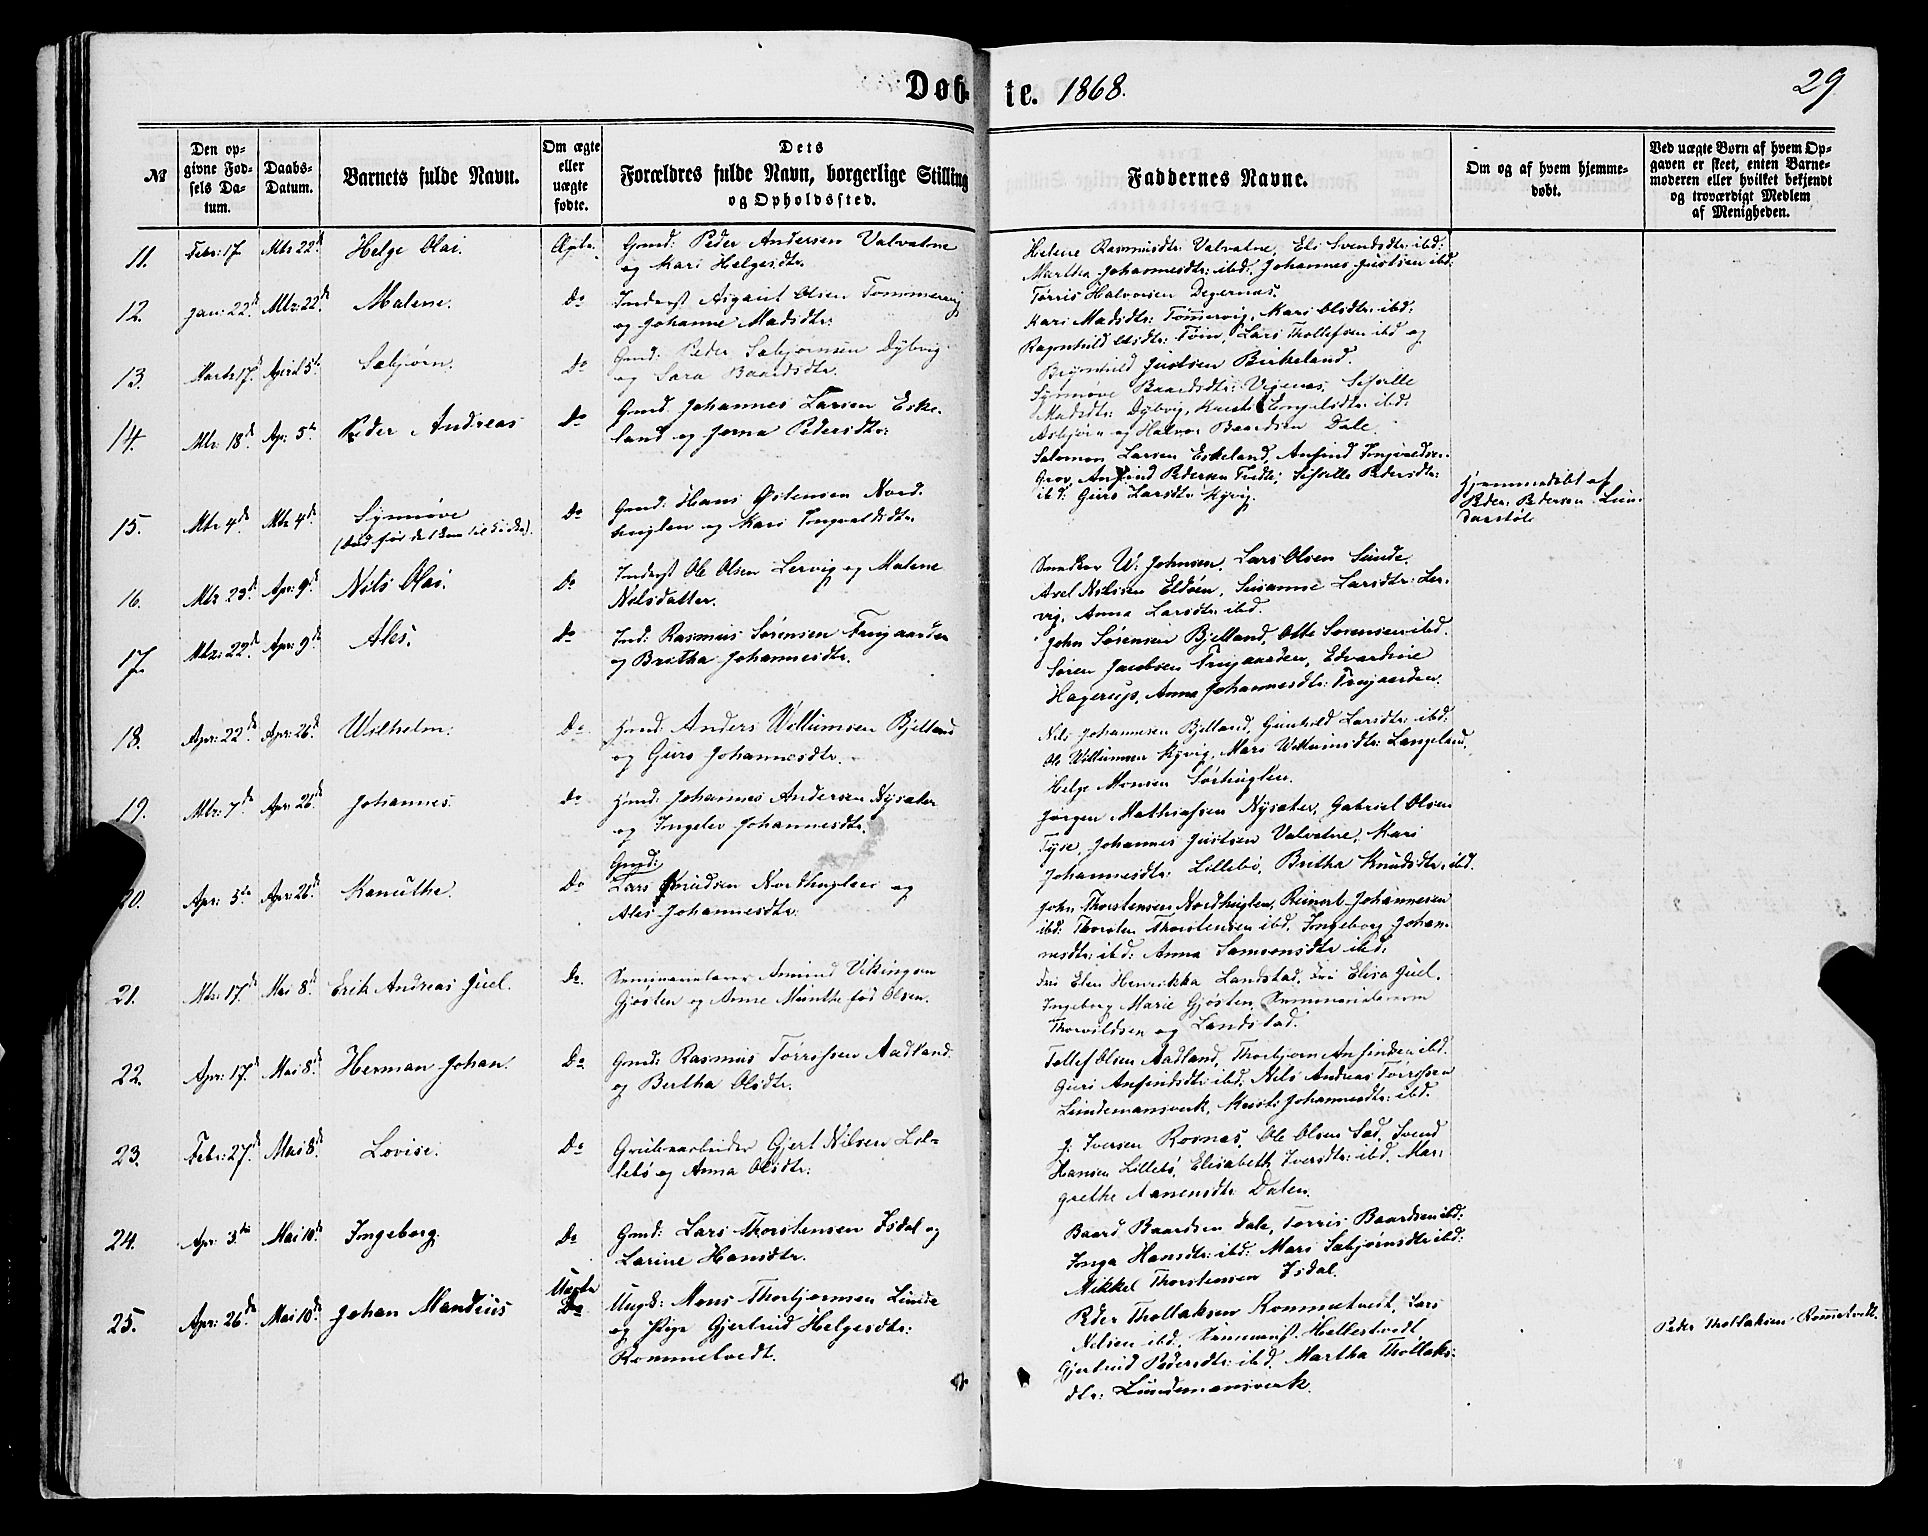 Døbte. 1868.
29
№
Den opgivne Fødsels Datum.
Daabs-Datum.
Barnets fulde Navn.
Om ægte eller uægte fødte.
Dets Forældres fulde Navn, borgerlige Stilling og Opholdssted.
Faddernes Navne.
Om og af hvem hjemmedøbt.
Ved uægte Børn af hvem Opgaven er skeet, enten Barnemoderen eller hvilket bekjendt og troværdigt Medlem af Menigheden.
11. Febr: 17 Mts 22d Helge Olai. Ægte. Gmd: Peder Andersen Valvatne
og Kari Helgesdtr.
Helene Rasmusdtr. Valvatne, Eli Svendsdtr: ibd:
Martha Johannesdtr: ibd. Johannes Justsen ibd:
Tørris Halvorsen Degernæs.
12. Jan: 22d Mts: 22d Malene. Do Inderst Asgaut Olsen Tømmervig
og Johanne Madsdtr:
Kari Madsdtr: Tømmervig, Kari Olsdtr: ibd:
Ragnhild Olsdtr: Tøin, Lars Thollefsen ibd og
Brynhild Justsen Birkeland.
13. Marts 17d April 5te Sæbjørn. Do Gmd: Peder Sæbjørnsen Dybvig
og Sara Baardsdtr.
Synnøve Baardsdtr: Vejenæs, Sisselle
Madsdtr: Dybvig, Kristi Engelsdtr: ibd:
Asbjørn og Halvor Baardsen Dale.
14. Mts. 18d Apr: 5te Peder Andreas Do Gmd. Johannes Larsen Eske-
land og Jorna Pedersdtr:
Salomon Larsen Eskeland, Anfind Ingvaldsen
Grov, Anfind Pedersen Tvedte, Sisselle Pedersdtr:
ibd: Guro Larsdtr: Kyvig.
15. Mts 4d Mts 4d Synnøve Do Gmd: Hans Østensen Nord-
huglen og Kari Ingvaldsdtr.
Hjemmedøbt af
Peder Pedersen Lun-
daastøl
16. Mts 23d Apr: 9d Nils Olai. Do Inderst Ole Olsen Lervig og Malene
Nilsdatter.
Snedker W. Johnsen. Lars Olsen Sunde.
Axel Nilsen Eldøen, Susanne Larsdtr: Ler-
vig, Anna Larsdtr: ibd.
17. Mts: 22d Apr: 9d Ales. Do Ind: Rasmus Sørensen Frugaarden
og Britha Johannesdtr.
John Sørensen Bjelland, Otte Sørensen ibd.
Søren Jacobsen Frugaarden, Edvardine
Hagerup, Anna Johannesdtr: Frugaarden.
18. Apr: 22d Apr: 26d Wilhelm. Do Gmd: Anders Willumsen Bjelland
og Guro Johannesdtr.
Nils Johannesen Bjelland, Gunhild Larsdtr: ibd:
Ole Willumsen Kyvig, Mari Willumsdtr: Langeland.
Helge Monsen Sørhuglen.
19. Mts: 7d Apr: 26d Johannes. Do Gmd: Johannes Andersen Nysæter
og Ingelev Johannesdtr.
Jørgen Mathiassen Nysæter, Gabriel Olsen
Tyse, Johannes Justsen Valvatne, Kari
Johannesdtr: Lillebø, Britha Knudsdtr: ibd.
20. Apr: 5te Apr: 26d Kanuthe. Do Gmd:
Lars Knudsen Nordhuglen og
Ales Johannesdtr:
John Thorstensen Nordhuglen, Reinert Johannesen
ibd: Thorsten Thorstensen ibd, Ingeborg Johan-
nesdtr: ibd: Anna Samsonsdtr ibd:
21. Mts: 17d Mai 8d Erik Andreas Juel. Do Seminarielærer Amund Vikingsen
Gjøsten og Anne Munthe fød Olsen.
Frø Elen Henrikka Landstad, Frø Elisa Juel.
Ingeborg Marie Gjøsten, Seminarielærerne
Thorvildsen og Landstad.
22. Apr: 17d Mai 8d Herman Johan. Do Gmd: Rasmus Tørrissen Aadland
og Bertha Olsdtr.
Tollef Olsen Aadland, Thorbjørn Anfindsen ibd.
Guri Anfindsdtr: ibd, Nils Andreas Tørrissen
Lundemansverk, Kristi Johannesdtr: ibd.
23. Febr: 27d Mai 8d Lovise. Do Grubearbeider Gjert Nilsen Lil-
lebø og Anna Olsdtr:
J: Iversen Rosnæs, Ole Olsen Sæd, Svend
Hansen Lillebø, Elisabeth Iversdtr: ibd, Mar-
grethe Aanensdtr. Dalen.
24. Apr 3die Mai 10d Ingeborg. Do Gmd: Lars Thorstensen Isdal og
Larine Hansdtr.
Baard Baardsen Dale, Tørris Baardsen ibd:
Inga Hansdtr: ibd: Mari Sæbjørnsdtr ibd:
Mikkel Thorstensen Isdal.
25. Apr: 26d Mai 10d Johan Mandius Uægte Ungk: Mons Thorbjørnsen Lunde
og Pige Gjertrud Helgesdtr:
Rommetvedt.
Peder Thollaksen Rommetvedt, Lars
Nilsen ibd, Hellestvedt
Gjertrud Pedersdtr: ibd, Martha Thollaks-
dtr: Lundemansverk.
Peder Thollaksen Rommetvedt.